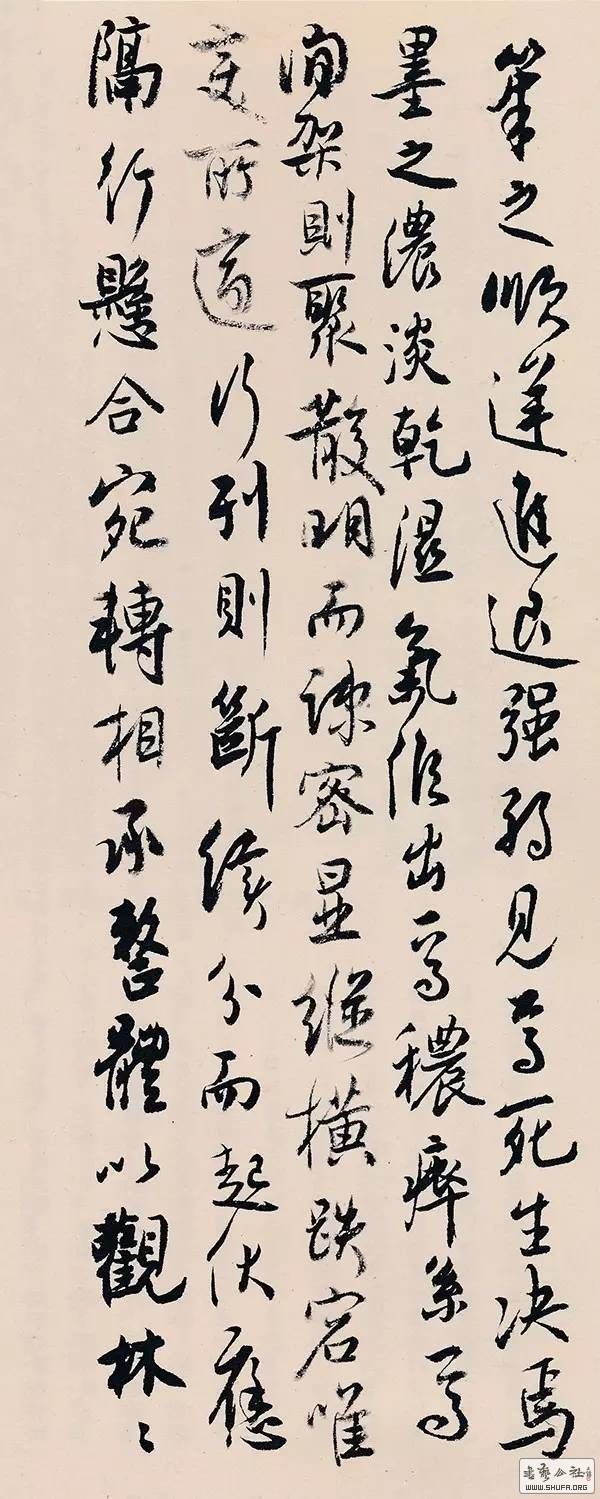 筆之順逆進退强弱見焉死生决焉
墨之濃淡乾濕氣候出焉穠瘁系焉
間架則聚散明而疎密显縱横跌宕唯
变所适行列則斷续分而起伏應
隔行懸合宛轉相承整體以觀林〻
書藝公社
WWW.SHUFA.ORG